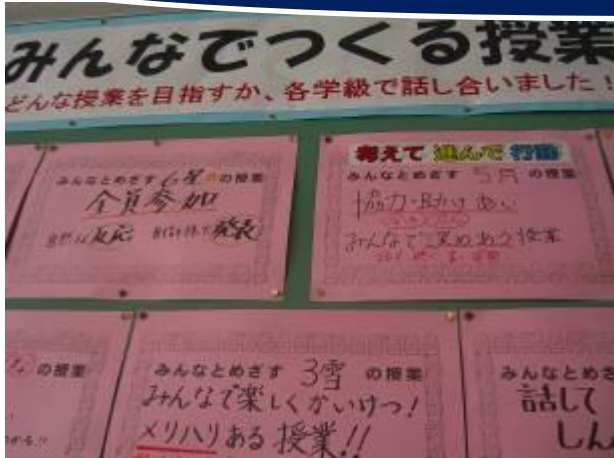 みんなでつくる授業
どんな授業を目指すか、各学級で話し合いました！
みんなとめざす 6星 の授業
全員参加
自然な反応 自信持って発表
考えて 進んで 行動
みんなとめざす 5月 の授業
協力・助けあい
みんなで深めあう授業
の授業
みんなとめざす 3雪 の授業
みんなで楽しくかいけつ！
メリハリある授業!!
みんなとめざ
話して
しん